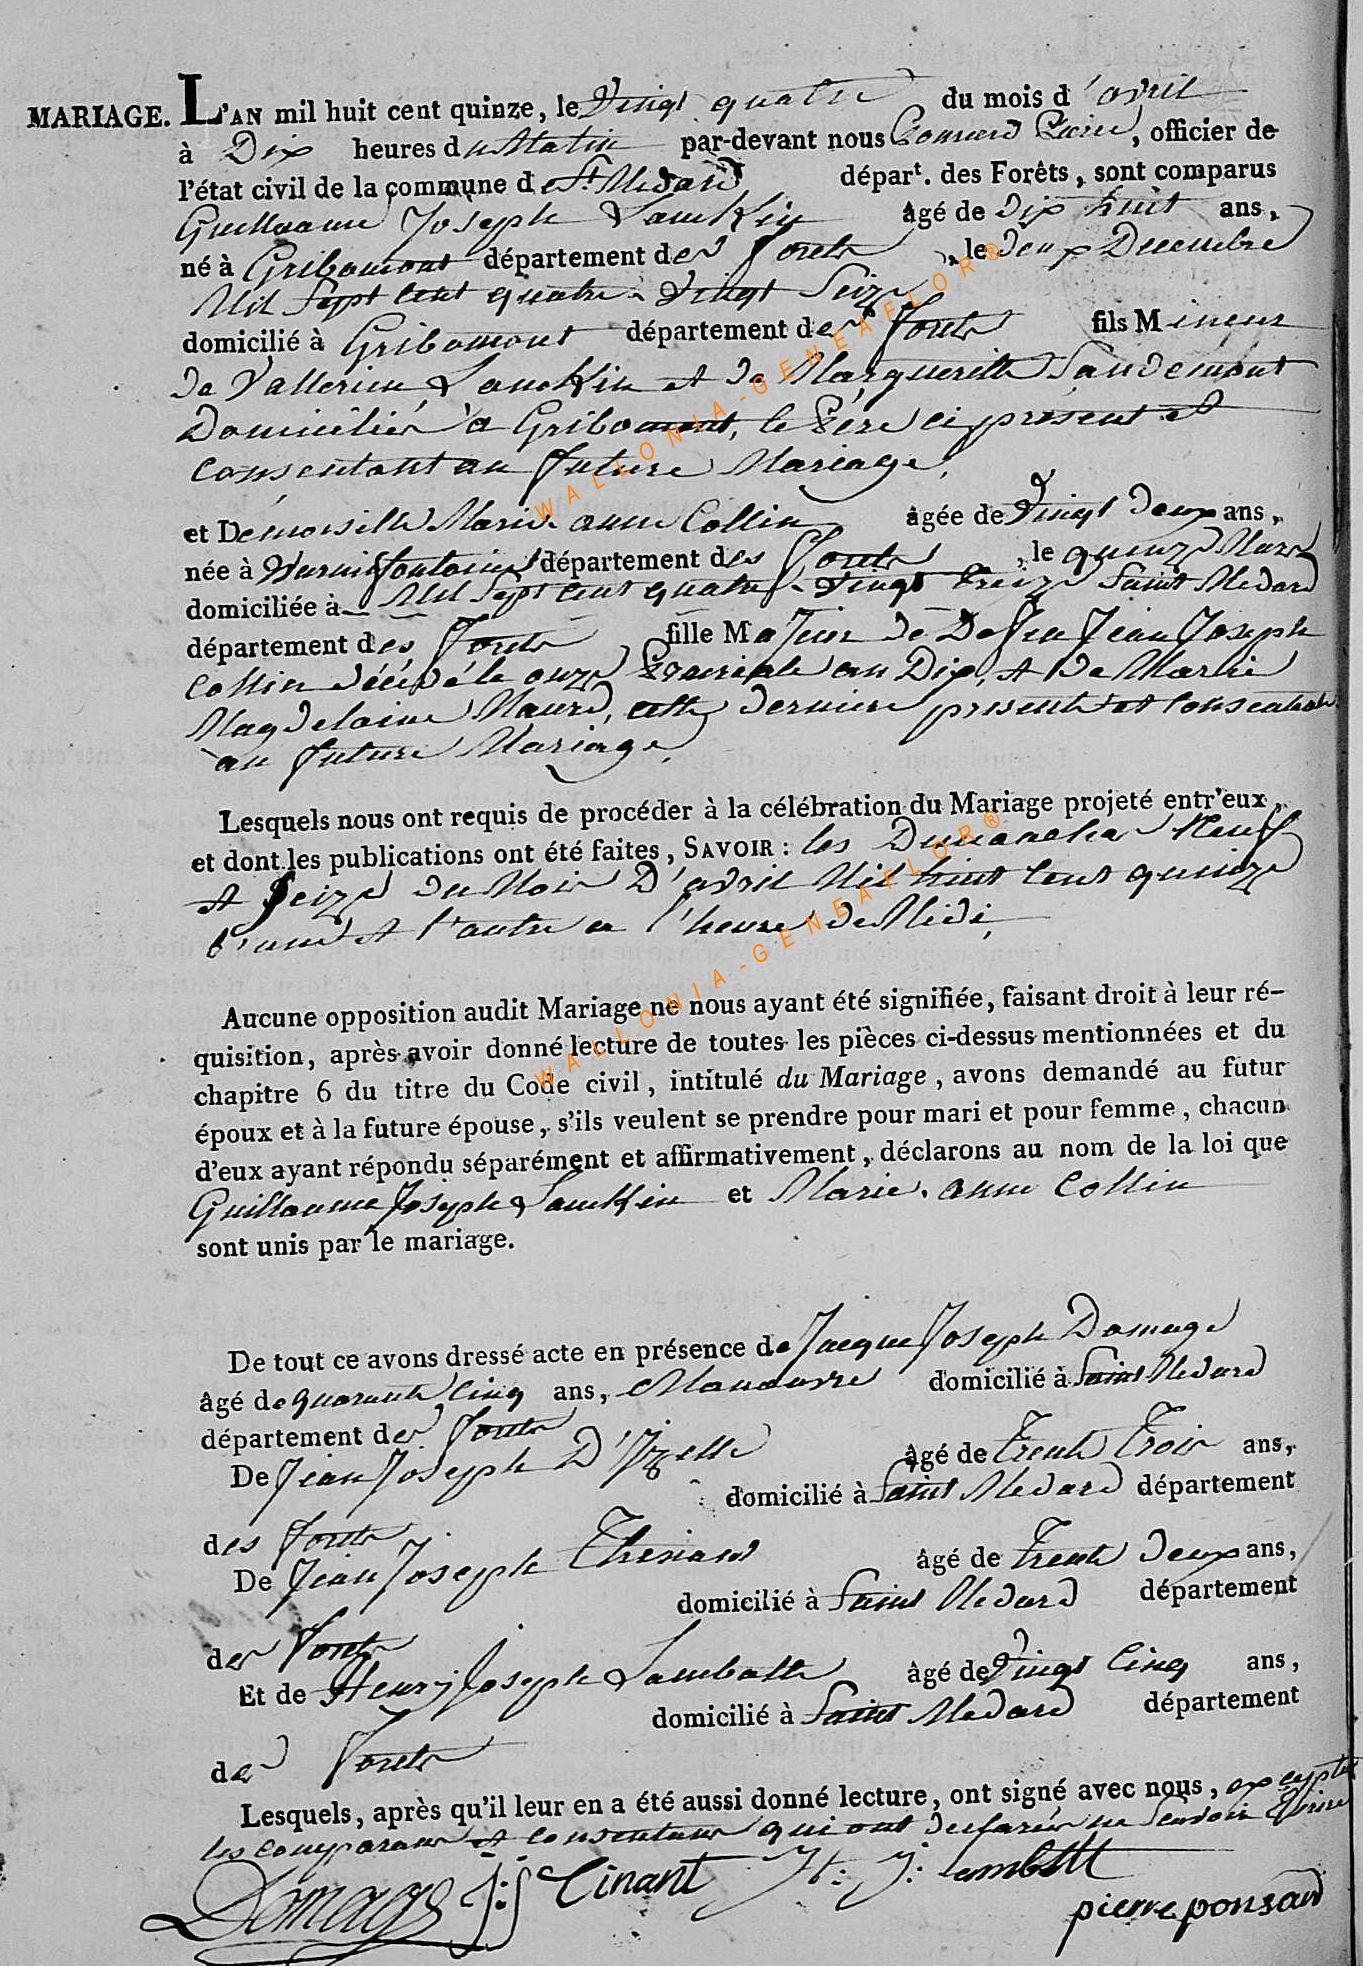 MARIAGE. L'AN mil huit cent quinze, le Vingt quatre du mois d'avril
à Dix heures du Matin par-devant nous Ponsard Pierre, officier de
l'état civil de la commune de St Medard départ. des Forêts, sont comparus
Guillaume Joseph Lanckin âgé de Dix huit ans,
né à Gribomont département des forets, le deux Decembre
Mil Sept cent quatre-Vingt Seize
domicilié à Gribomont département des forets fils Mineur
de Vallerien Lanckin et de Margueritte Sandemont
Domiciliés à Gribomont, le Père ci présent et
consentant au future Mariage,
et Demoiselle Marie-anne Collin âgée de Vingt deux ans,
née à Warmifontaine département des forets, le quinze Mars
domiciliée à Mil Sept cent quatre-vingt treize Saint Medard
département des forets fille Majeur de Defeu Jean Joseph
Collin décédé le onze an Dix, et de Marie
Magdelaine Maurd, cette derniere presente et consentante
au future Mariage,
Lesquels nous ont requis de procéder à la célébration du Mariage projeté entr'eux,
et dont les publications ont été faites, SAVOIR : les Dimanches Neuf
et Seize du Mois D'avril Mil huit Cent quinze
l'une et l'autre a l'heure de Midi,
Aucune opposition audit Mariage ne nous ayant été signifiée, faisant droit à leur ré-
quisition, après avoir donné lecture de toutes les pièces ci-dessus mentionnées et du
chapitre 6 du titre du Code civil, intitulé du Mariage, avons demandé au futur
époux et à la future épouse, s'ils veulent se prendre pour mari et pour femme, chacun
d'eux ayant répondu séparément et affirmativement, déclarons au nom de la loi que
Guillaume Joseph Lanckin et Marie-anne Collin
sont unis par le mariage.
De tout ce avons dressé acte en présence de Jacque Joseph Domage
âgé de quarante Cinq ans, Manouvre domicilié à Saint Medard
département des forets
De Jean Joseph D'Izelle âgé de trente trois ans,
domicilié à Saint Medard département
des forets
De Jean Joseph Thenard âgé de trente deux ans,
domicilié à Saint Medard département
des forets
Et de Henry Joseph Lambotte âgé de Vingt Cinq ans,
domicilié à Saint Medard département
des Forets
Lesquels, après qu'il leur en a été aussi donné lecture, ont signé avec nous, exceptez
les comparans et consentans qui ont declarés ne Scavoir Ecrire
Domage J:J Tinant H: J: Lambott
pierre ponsard
WALLONIA-GENEAFLOR®
WALLONIA-GENEAFLOR®